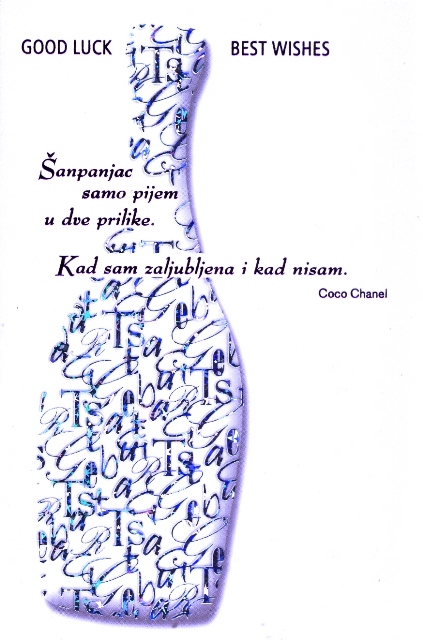 GOOD LUCK BEST WISHES
Šanpanjac
samo pijem
u dve prilike.
Kad sam zaljubljena i kad nisam.
Coco Chanel